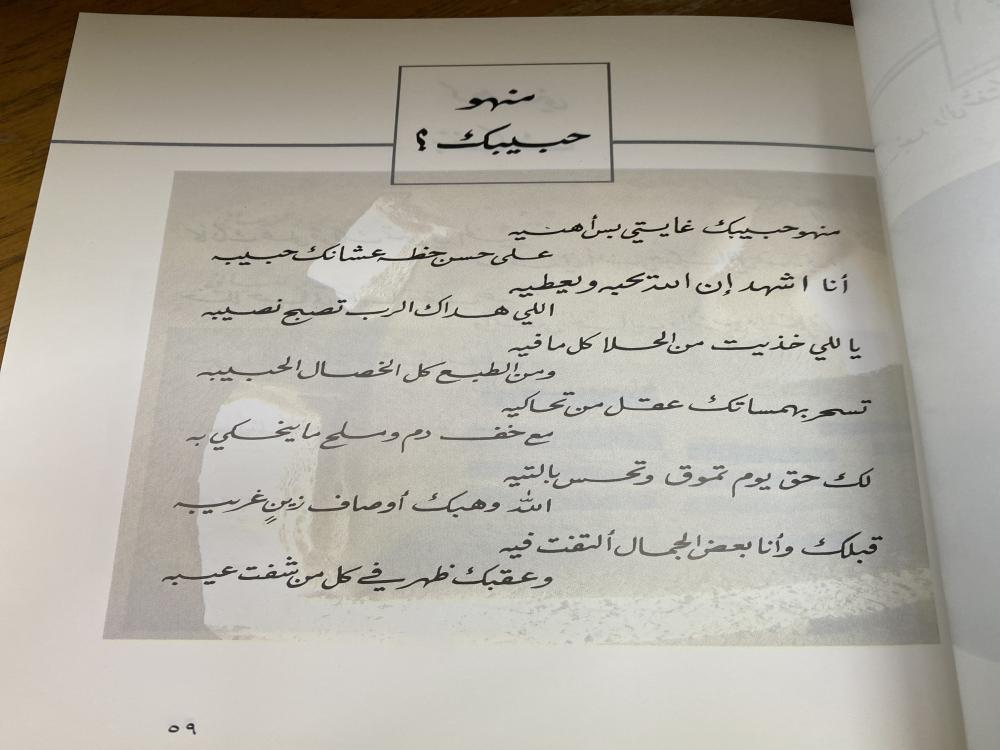 منهو
حبيبك ؟
منهو حبيبك غايتي بس أهنيه
على حسن حظه عشانك حبيبه
أنا اشهد إن الله يحبه ويعطيه
اللي هداك الرب تصبح نصيبه
يا للي خذيت من الحلا كل ما فيه
ومن الطبع كل الخصال الحبيبه
تسحر بهمساتك عقل من تحاكيه
مع خف دم وملح ما ينحكي به
لك حق يوم تموق وتحس بالتيه
الله وهبك أوصاف زينٍ غريبه
قبلك وأنا بعض الجمال ألتفت فيه
وعقبك ظهر في كل من شفت عيبه
٥٩